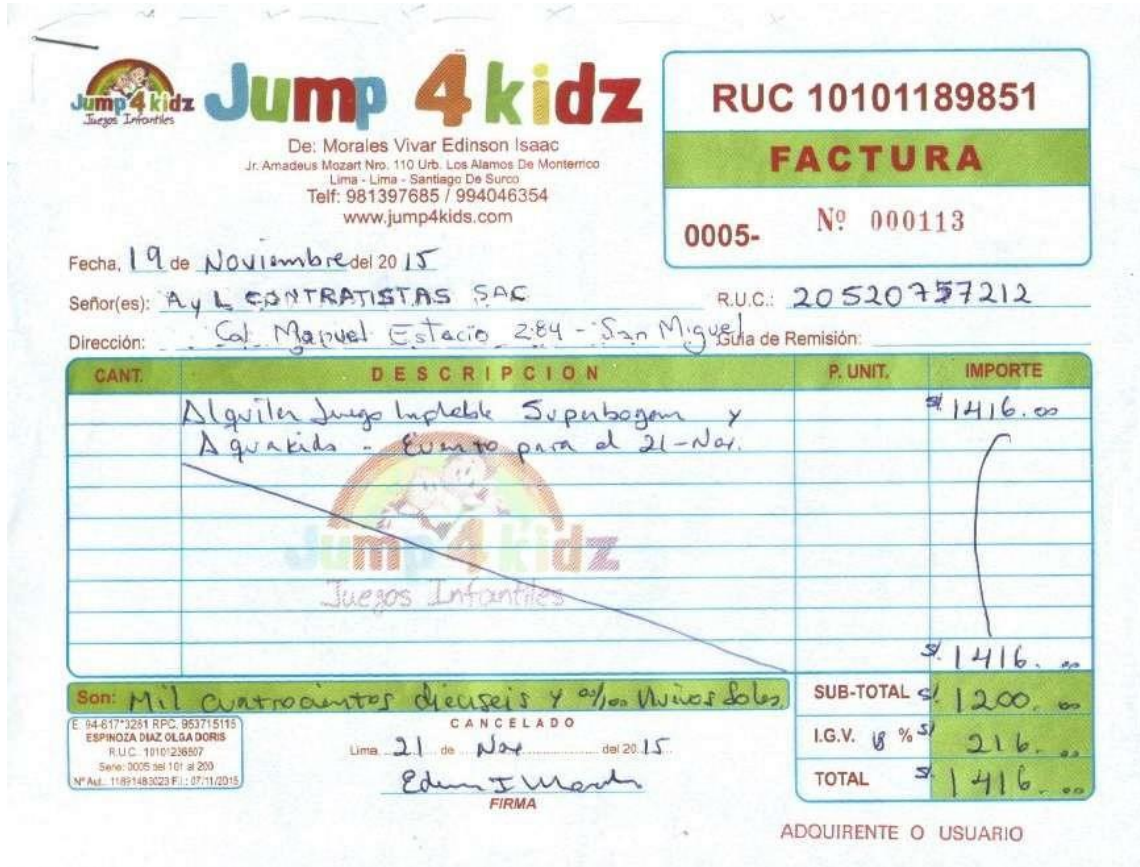 Jump 4 kidz
Juegos Infantiles
Jump 4 kidz
De: Morales Vivar Edinson Isaac
Jr. Amadeus Mozart Nro. 110 Urb. Los Alamos De Monterrico
Lima - Lima - Santiago De Surco
Telf: 981397685 / 994046354
www.jump4kids.com
RUC 10101189851
FACTURA
0005- Nº 000113
Fecha, 19 de Noviembre del 20 15
Señor(es): A y L CONTRATISTAS SAC R.U.C.: 20520757212
Dirección: Cal. Manuel Estacio 284 - San Miguel Guia de Remisión:
CANT. DESCRIPCION P. UNIT. IMPORTE
Alquiler Juego Inflable Superbogem y S/. 1416.00
Aquakids - Evento para el 21-Nov.
Jump 4 kidz
Juegos Infantiles
S/. 1416.00
Son: Mil cuatrocientos dieciseis y 00/100 Nuevos Soles
SUB-TOTAL S/. 1200.00
I.G.V. 18 % S/ 216.00
TOTAL S/. 1416.00
E: 94-617*3261 RPC. 953715115
ESPINOZA DIAZ OLGA DORIS
R.U.C. 10101236507
Serie: 0005 del 101 al 200
Nº Aut.: 11891483023 F.I.: 07/11/2015
CANCELADO
Lima, 21 de Nov del 20 15
FIRMA
ADQUIRENTE O USUARIO